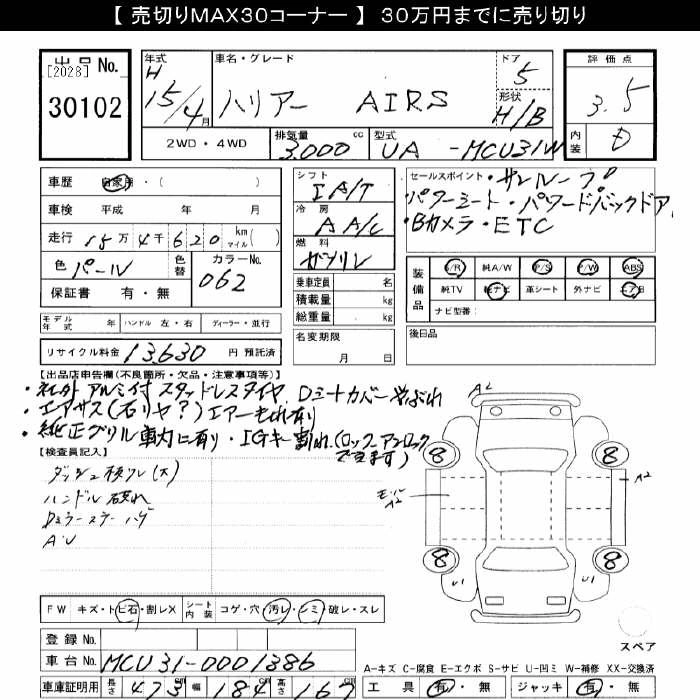 【 売切りMAX30コーナー 】 30万円までに売り切り
出品 No.
[2028]
30102
年式 H 15/4月
車名・グレード ハリアー AIRS
ドア 5
形状 H/B
評価点 3.5
内装 D
2WD・4WD
排気量 3.000 cc
型式 UA -MCU31W
車歴 自家用・( )
車検 平成 年 月
走行 15万4千620 km マイル( )
色 パール
色替
カラーNo. 062
保証書 有・無
シフト IA/T
冷房 AA/C
燃料 ガソリン
乗車定員 名
積載量 kg
総重量 kg
名変期限 月 日
セールスポイント・サンルーフ
・パワーシート・パワードバックドア
・Bカメラ・ETC
装備品
S/R 純A/W P/S P/W ABS
純TV 純ナビ 革シート 外ナビ エアB
ナビ型番:
後日品
モデル年式 年 ハンドル 左・右 ディーラー・並行
リサイクル料金 13630 円 預託済
【出品店申告欄(不良箇所・欠品・注意事項等)】
・社外アルミ付スタッドレスタイヤ Dシートカバーやぶれ
・エアサス(右リヤ?)エアーもれ有り
・純正グリル車内に有り・IGキー割れ(ロックアンロックできます)
【検査員記入】
ダッシュ板フレ(大)
ハンドル破れ
Dミラーステーハゲ
A・U
A2
8
8
A2
モール A2
8
8
U1
U1
スペア
FW キズ・トビ石・割レX シート内装 コゲ・穴・汚レ・シミ・破レ・スレ
登録 No.
車台 No. MCU31-0001386
車庫証明用 長さ 473 cm 幅 184 cm 高さ 167
A-キズ C-腐食 E-エクボ S-サビ U-凹ミ W-補修 XX-交換済
工具 有・無 ジャッキ 有・無